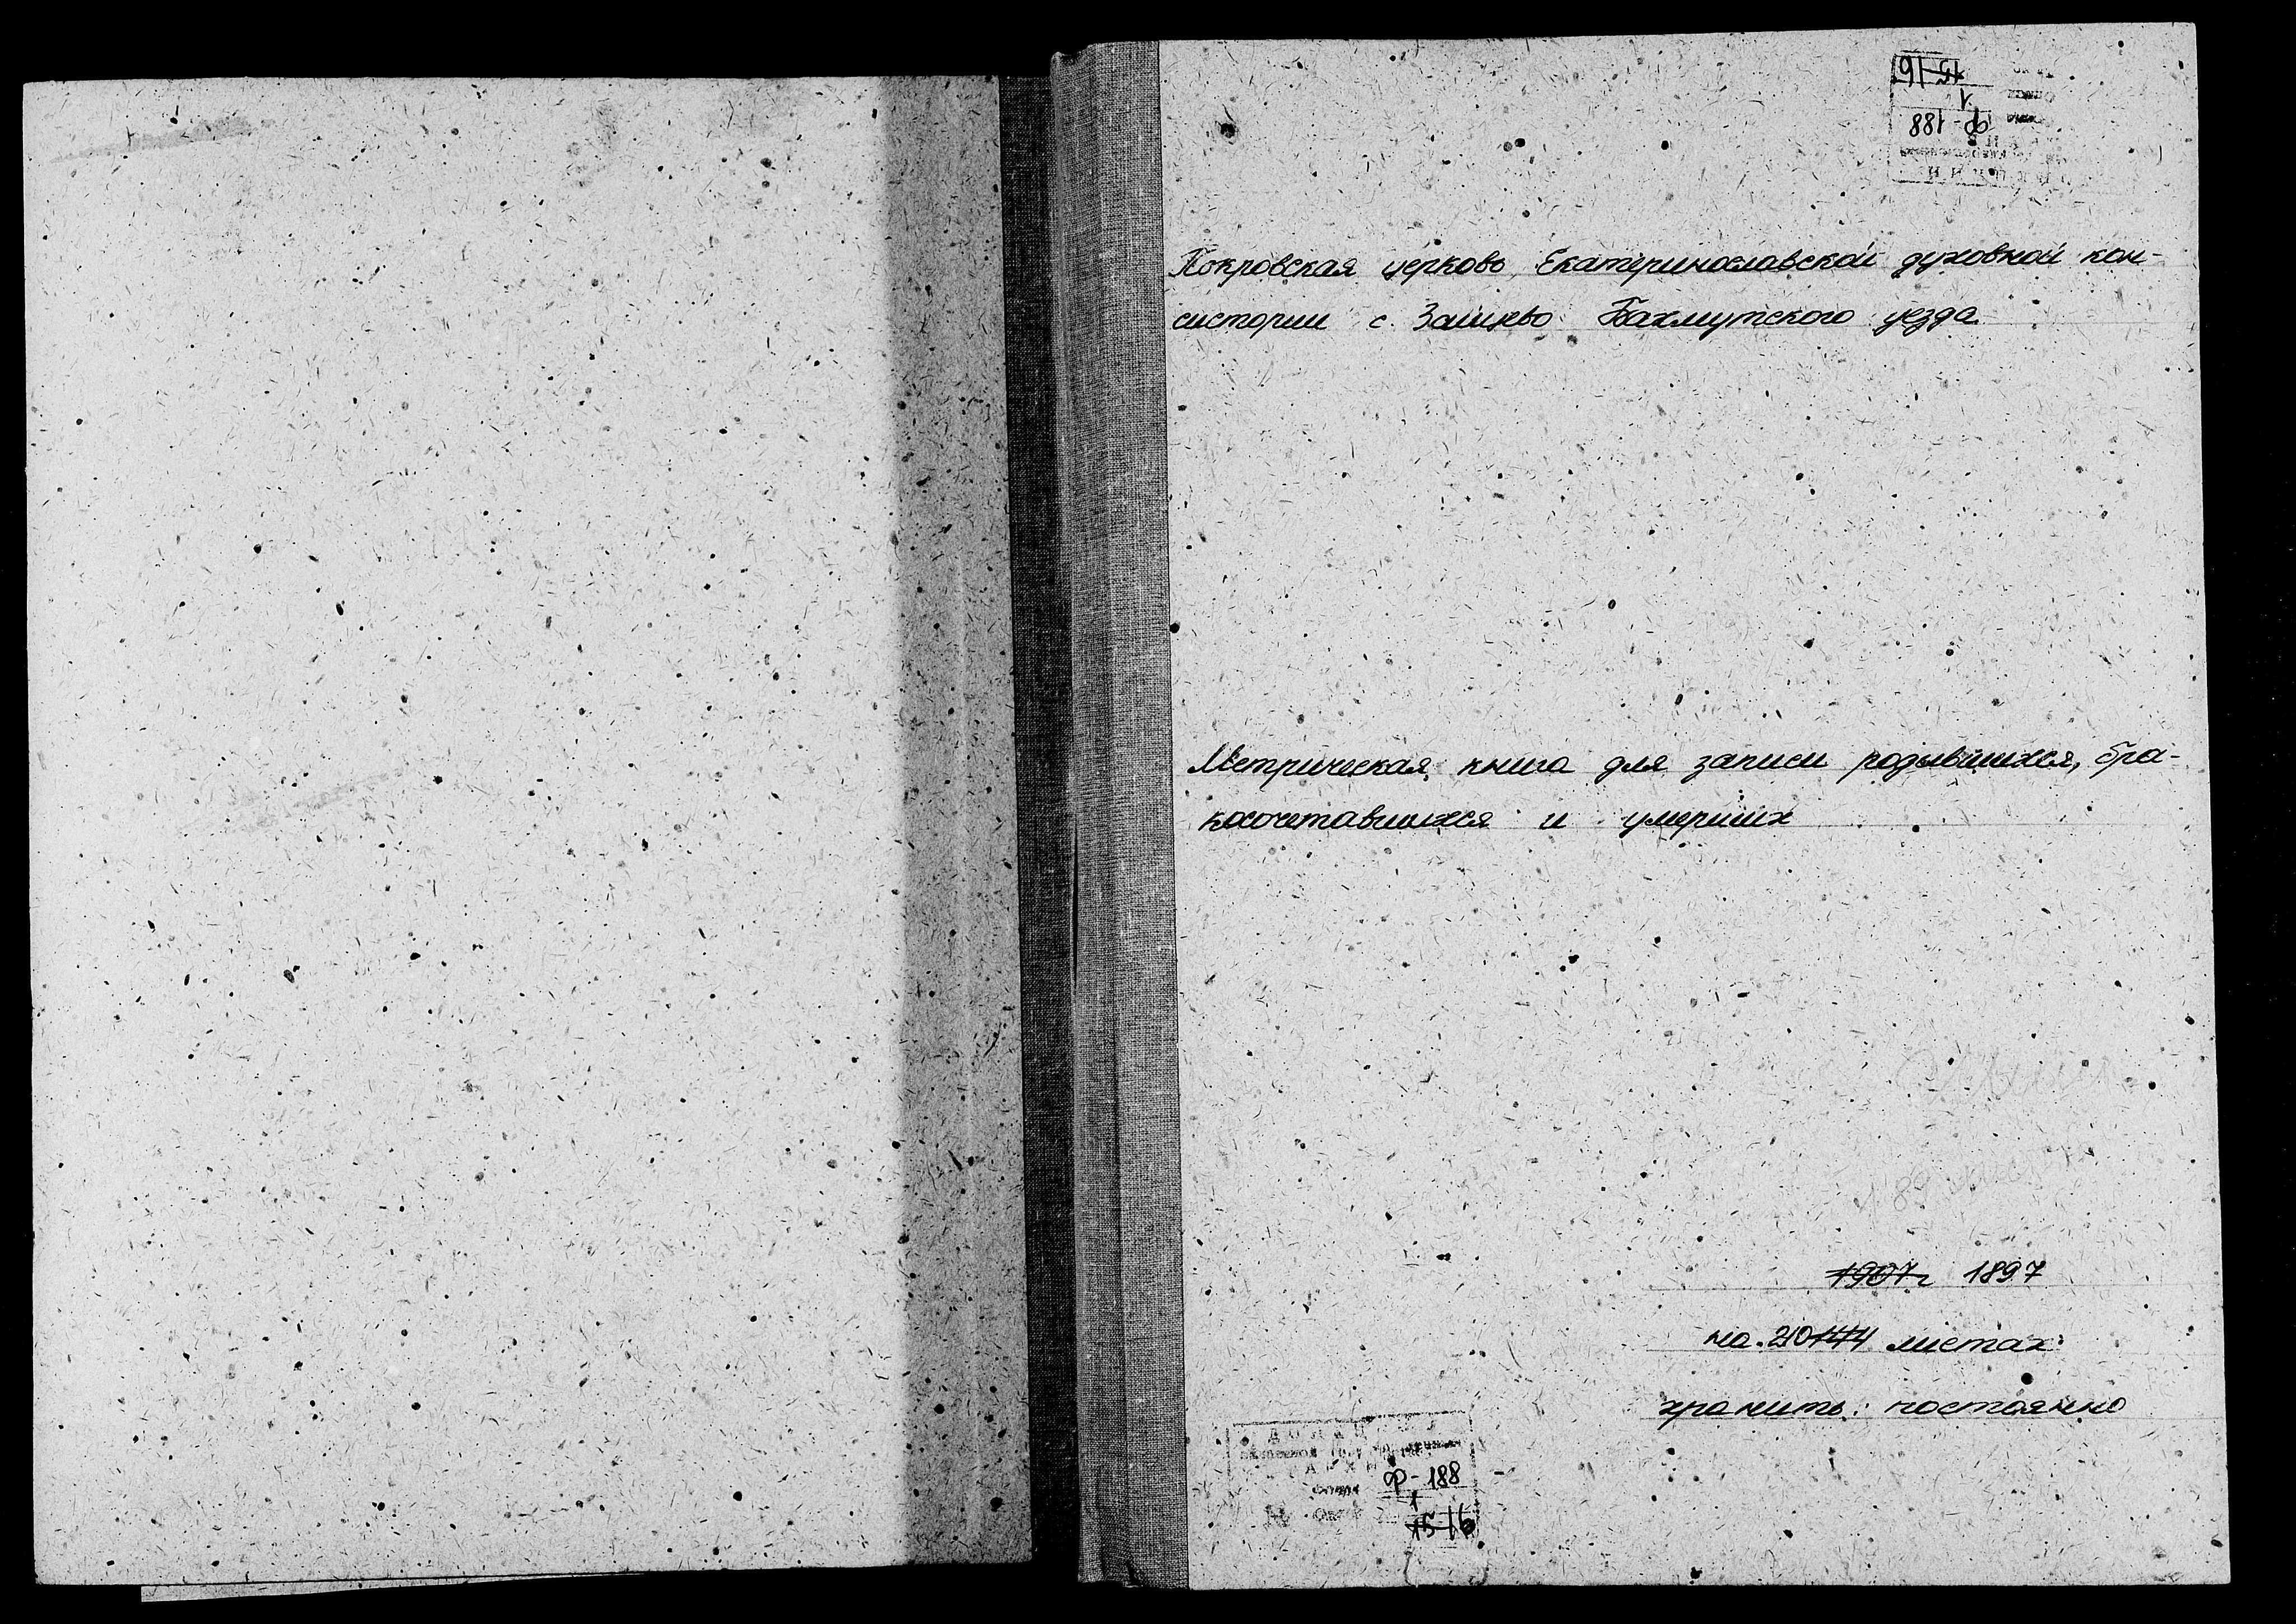 15 16
1
Ф-188
Покровская церковь Екатеринославской духовной кон-
систории с. Зайцево Бахмутского уезда
Метрическая книга для записи родившихся, бра-
косочетавшихся и умерших
1907г 1897
на листах
хранить: постоянно
Ф-188
1
15 16